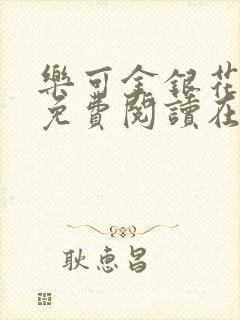 樂可金銀花
免費閱讀在
耿惠昌